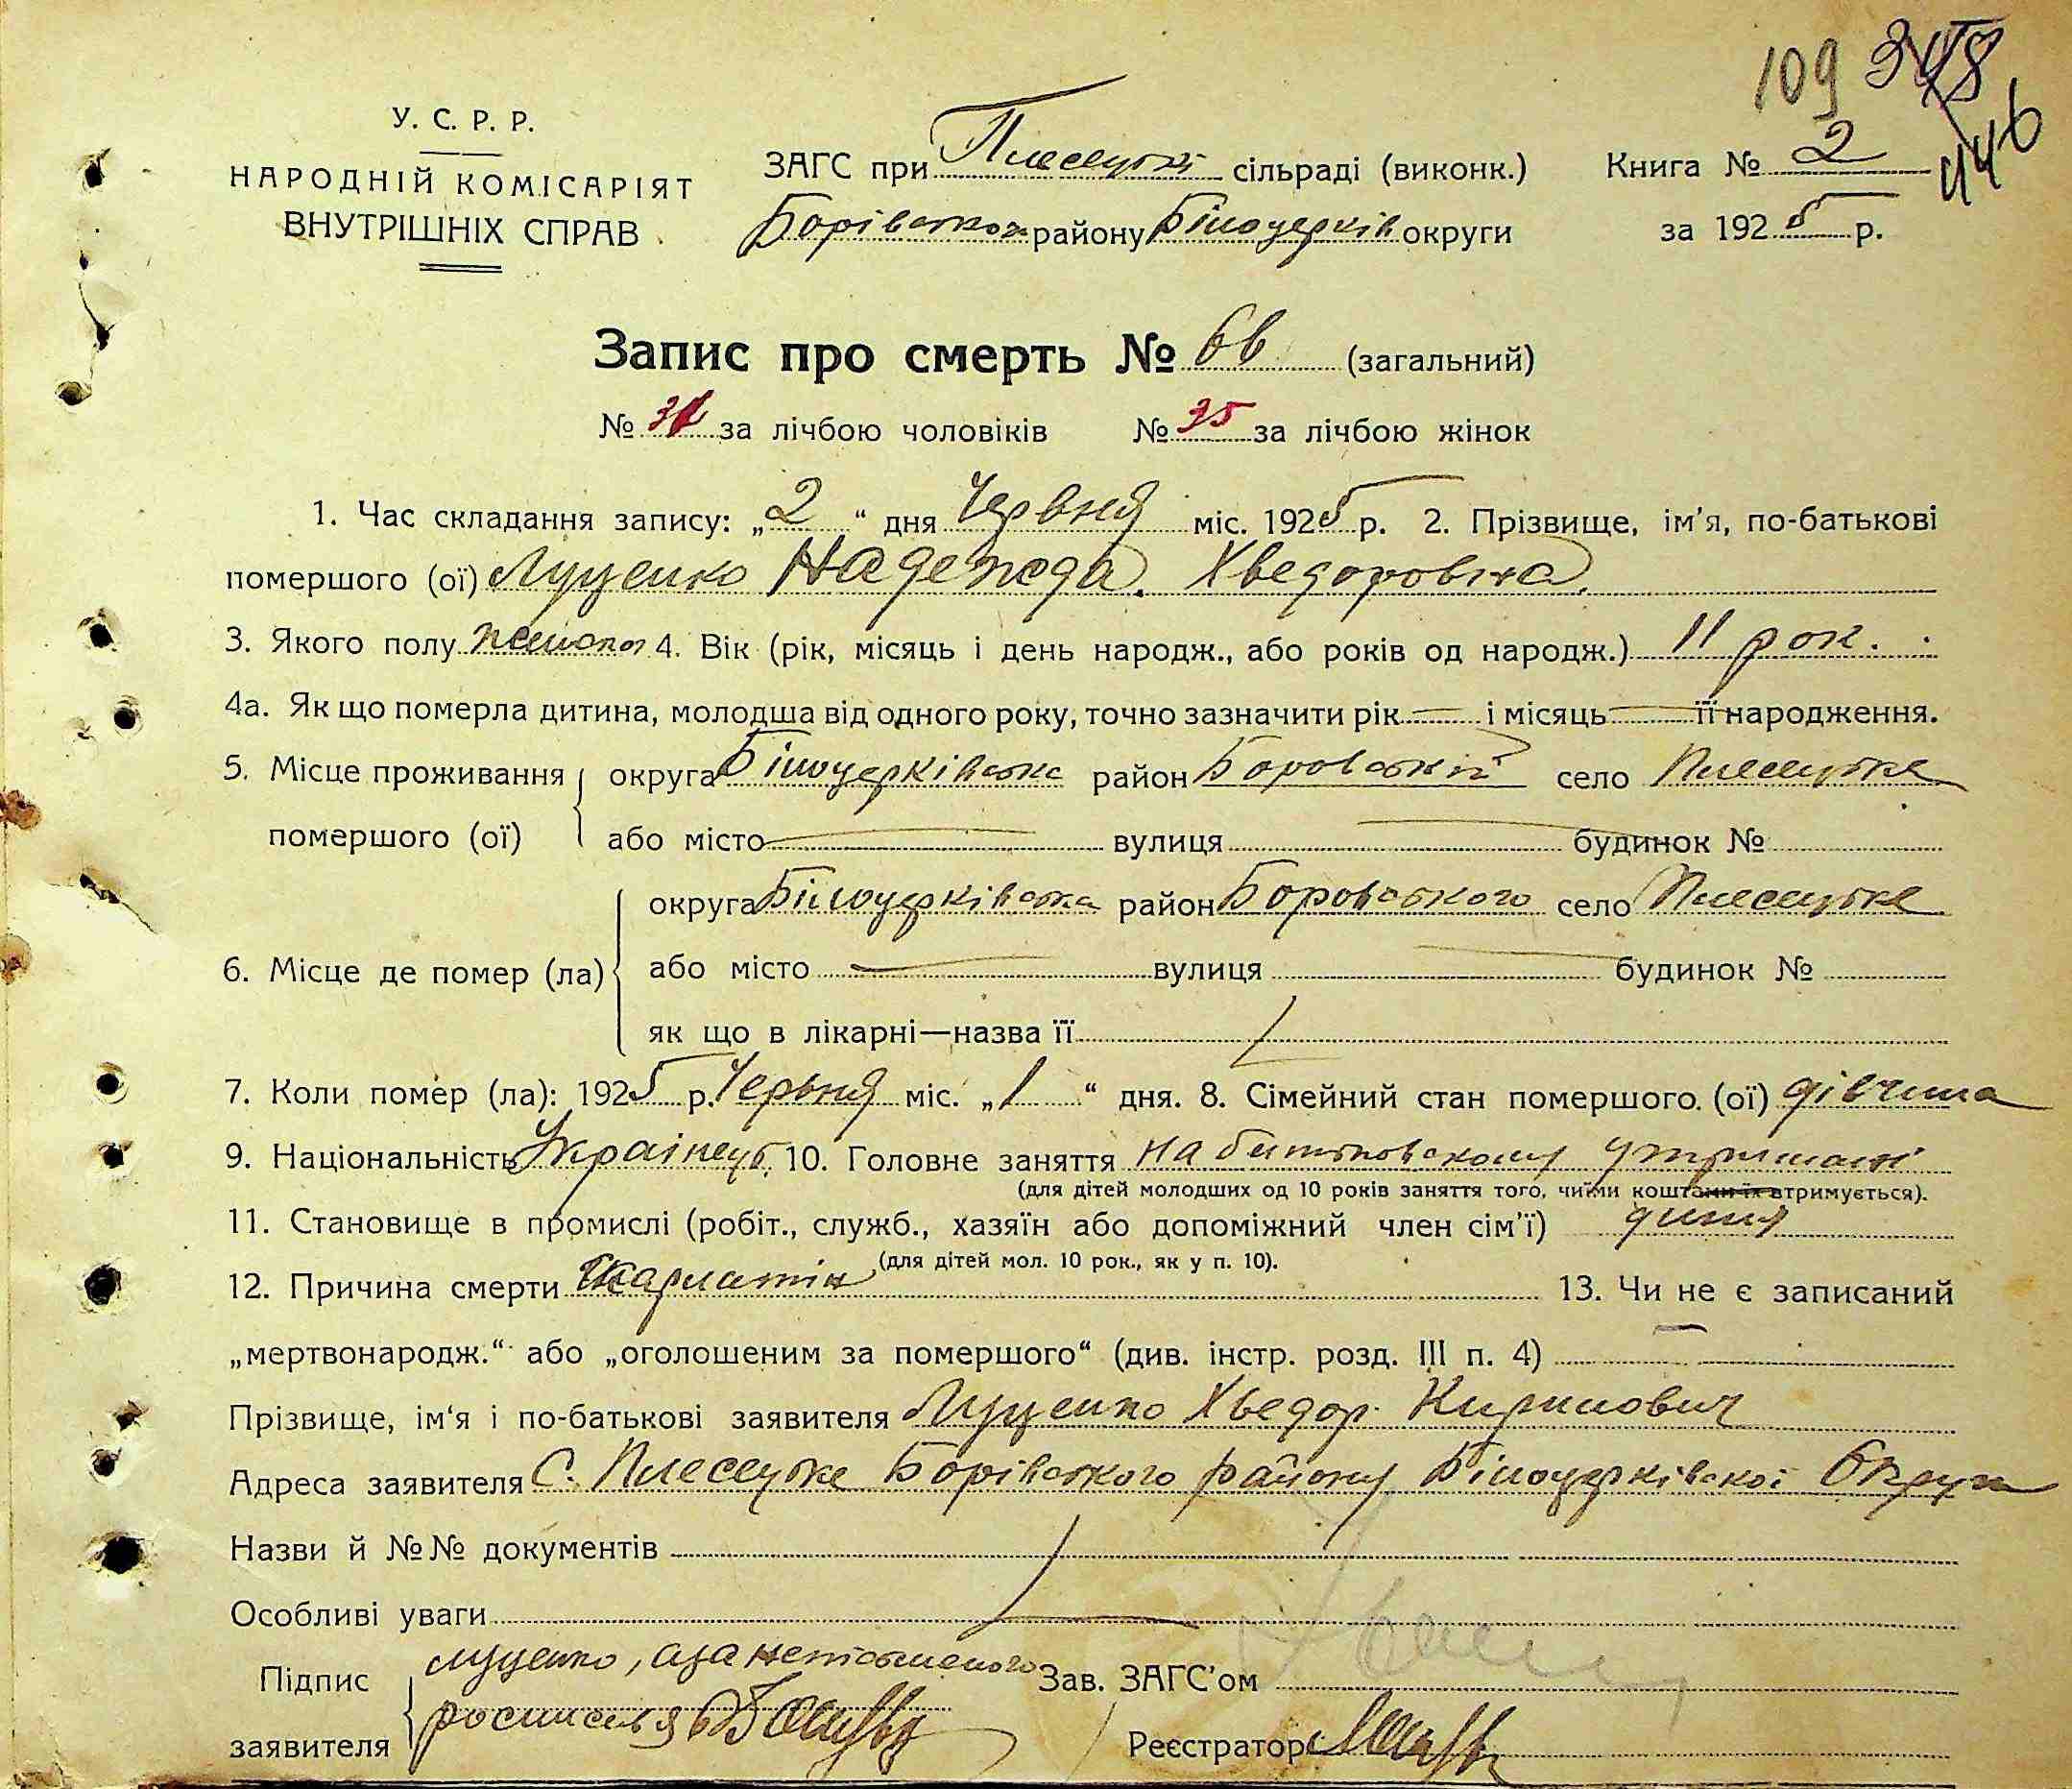 109 348
446
У. С. Р. Р.
НАРОДНІЙ КОМІСАРІЯТ
ВНУТРІШНІХ СПРАВ
ЗАГС при Плесецькі сільраді (виконк.)
Борівськоі району Білоцерків округи
Книга № 2
за 1925 р.
Запис про смерть № 66 (загальний)
№ за лічбою чоловіків № 35 за лічбою жінок
1. Час складання запису: „2“ дня Червня міс. 1925 р. 2. Прізвище, ім'я, по-батькові
помершого (ої) Луценко Надежда Хведоровна
3. Якого полу женськоі 4. Вік (рік, місяць і день народж., або років од народж.) 11 рок.
4а. Як що померла дитина, молодша від одного року, точно зазначити рік — і місяць — її народження.
5. Місце проживання помершого (ої) округа Білоцерківська район Боровський село Плесецьке
або місто — вулиця — будинок №
6. Місце де помер (ла) округа Білоцерківська район Боровського село Плесецьке
або місто — вулиця — будинок №
як що в лікарні—назва її
7. Коли помер (ла): 1925 р. Червня міс. „1“ дня. 8. Сімейний стан помершого (ої) дівчина
9. Національність Украінець 10. Головне заняття на батьковському утримані
(для дітей молодших од 10 років заняття того, чиїми коштами їх втримується).
11. Становище в промислі (робіт., служб., хазяїн або допоміжний член сім'ї)
(для дітей мол. 10 рок., як у п. 10).
12. Причина смерти Скарлатін 13. Чи не є записаний
„мертвонародж.“ або „оголошеним за помершого“ (див. інстр. розд. III п. 4) —
Прізвище, ім'я і по-батькові заявителя Луценко Хведор Кирилович
Адреса заявителя С. Плесецьке Борівського району Білоцерківскоі Округи
Назви й №№ документів
Особливі уваги
Підпис заявителя Луценко, а за нетямненого
росписався
Зав. ЗАГС'ом
Реєстратор